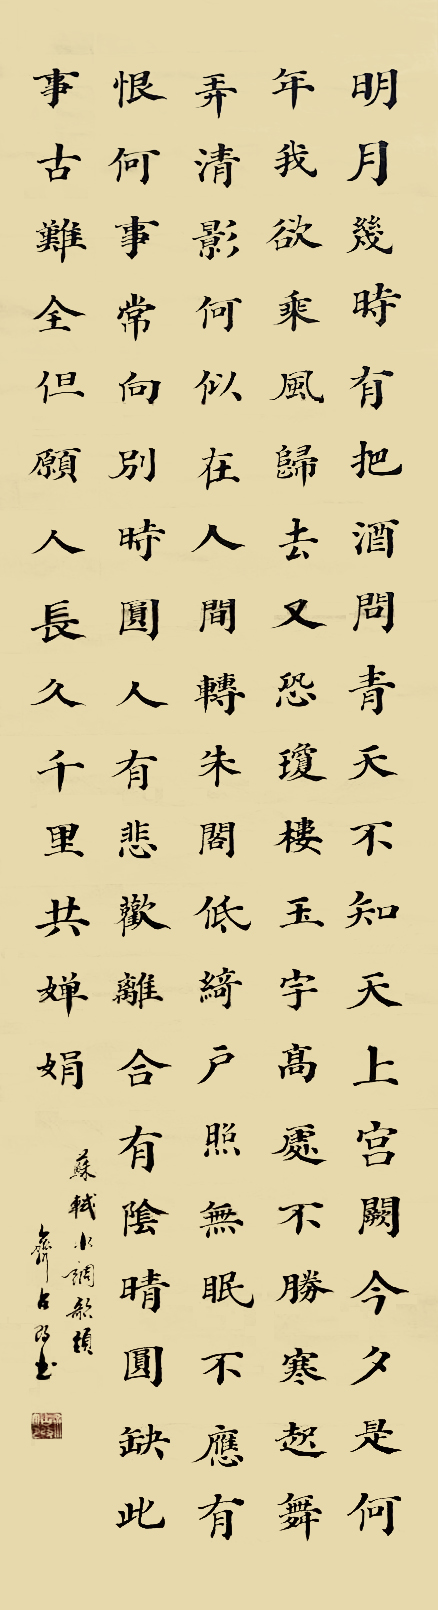 明月幾時有把酒問青天不知天上宫闕今夕是何
年我欲乘風歸去又恐瓊樓玉宇高處不勝寒起舞
弄清影何似在人間轉朱閣低綺户照無眠不應有
恨何事常向别時圓人有悲歡離合有陰晴圓缺此
事古難全但願人長久千里共婵娟
蘇軾水調歌頭
齊占書